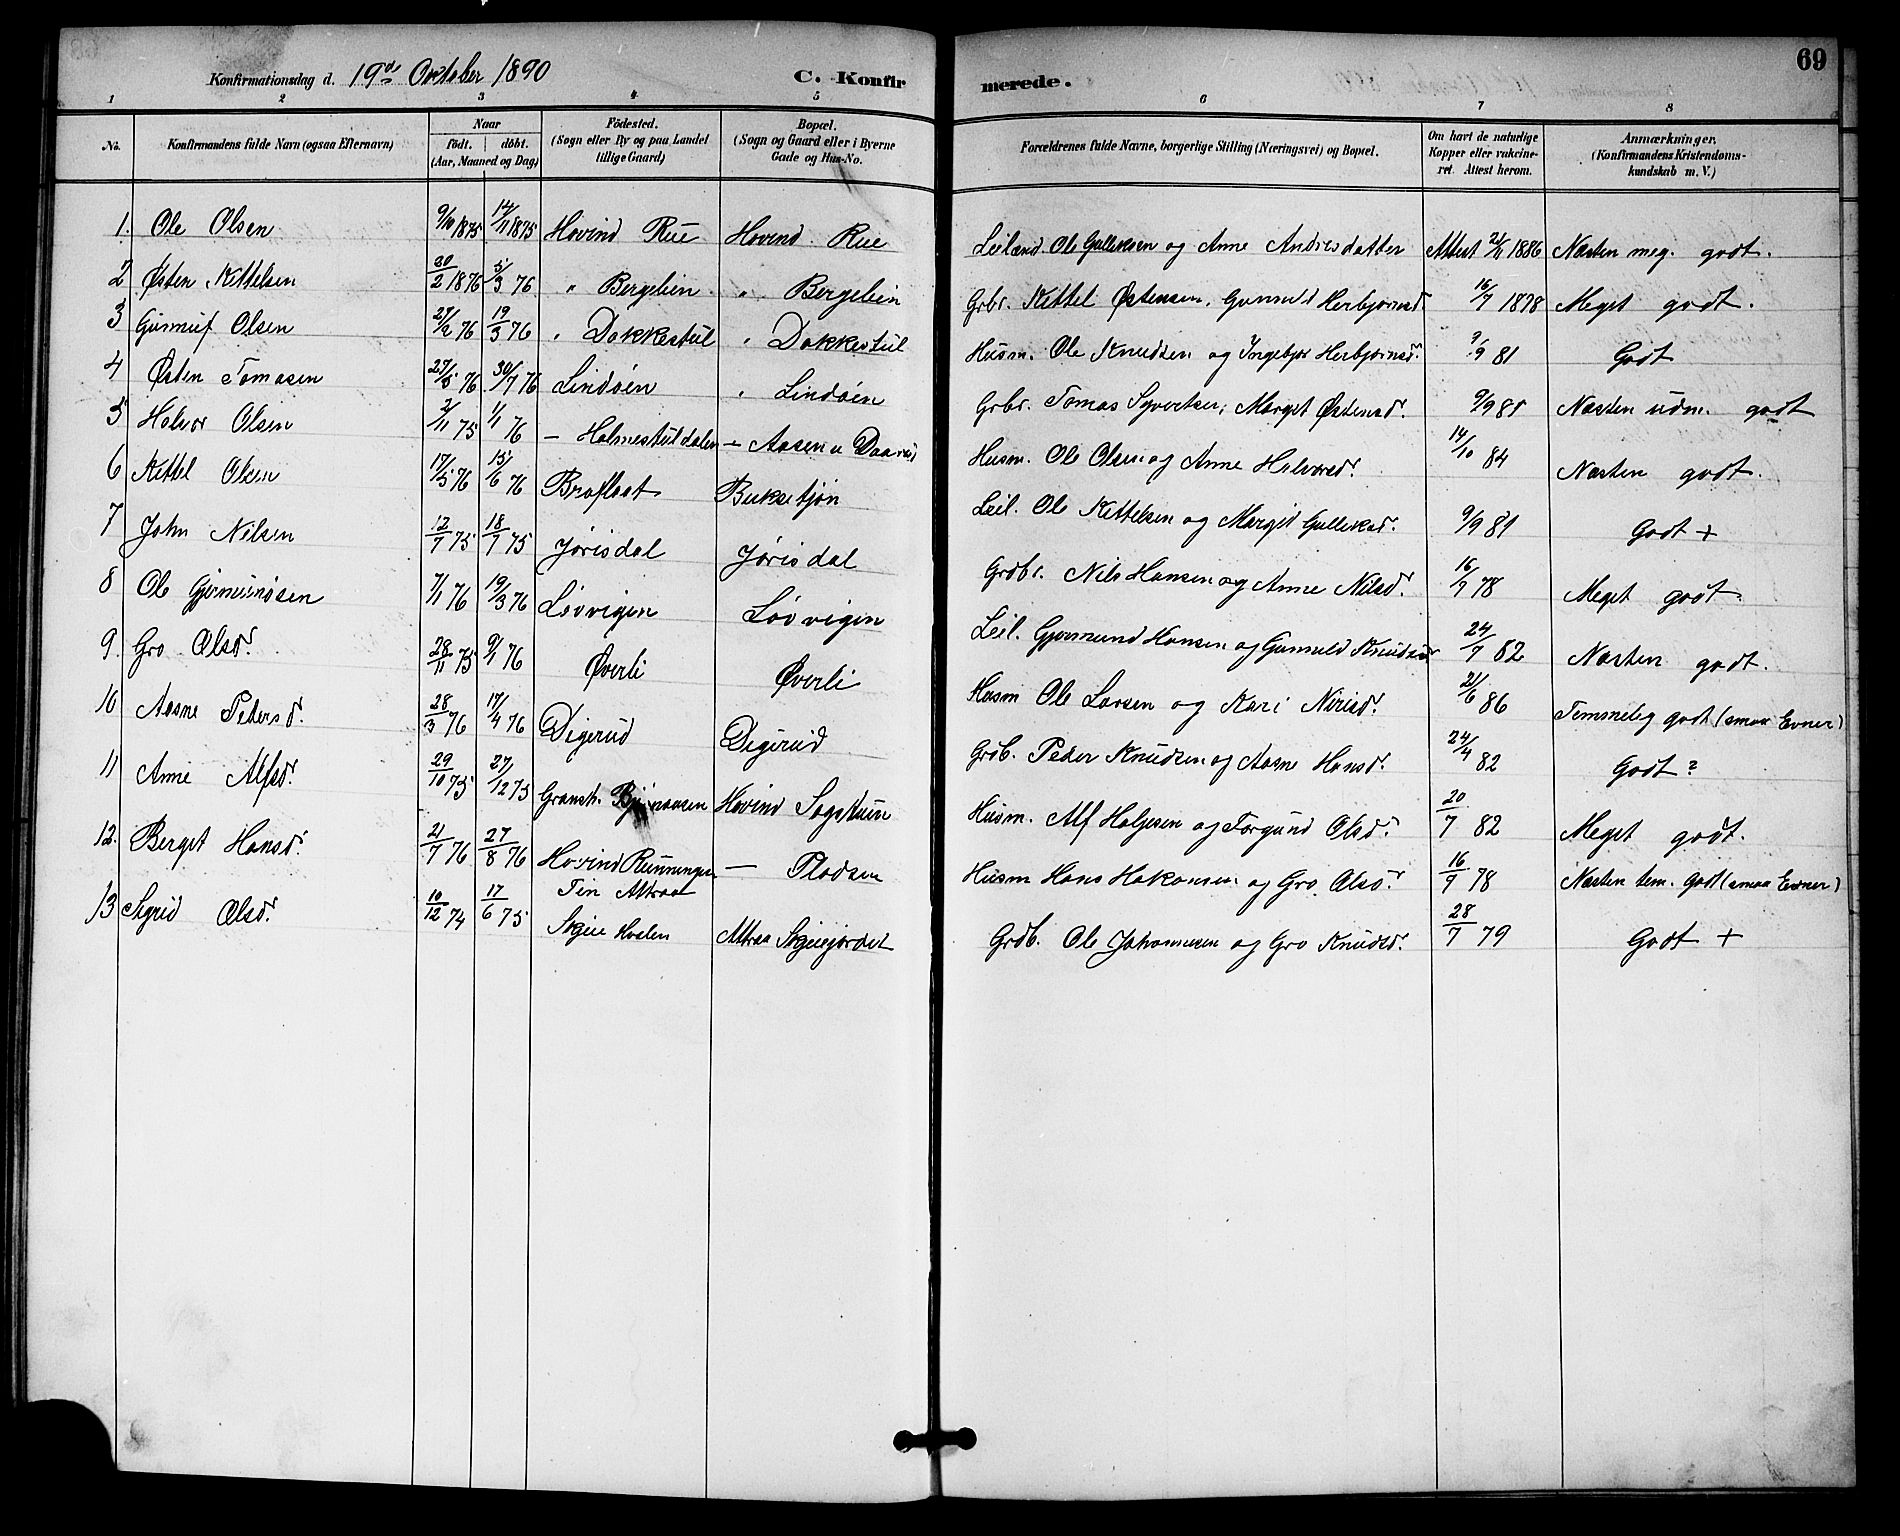 69
Konfirmationsdag d. 19de October 1890 C. Konfirmerede.
1 2 3 4 5 6 7 8
No. Konfirmandens fulde Navn (ogsaa Efternavn) Naar födt. döbt. (Aar, Maaned og Dag) Födested. (Sogn eller By og paa Landet tillige Gaard) Bopæl. (Sogn og Gaard eller i Byerne Gade og Hus-No. Forældrenes fulde Navne, borgerlige Stilling (Næringsvei) og Bopæl. Om havt de naturlige Kopper eller vakcineret. Attest herom. Anmærkninger. (Konfirmandens Kristendomskundskab m. V.)
1. Ole Olsen 9/10 1875 14/11 1875 Hovind Rue Hovind Rue Leilænd. Ole Gulliksen og Anne Andresdatter Attest 21/11 1886 Næsten meg. godt.
2 Østen Kittelsen 20/2 1876 5/3 76 " Bergelien " Bergelien Grbr. Kittel Østensen, Gunnild Herbjørnsd. 16/7 1878 Meget godt.
3 Gunnuf Olsen 27/2 76 19/3 76 " Dokkestul " Dokkestul Husm. Ole Knudsen og Ingebjør Herbjørnsd. 9/9 81 Godt
4 Østen Tomasen 27/5 76 30/7 76 Lindöen " Lindöen Grbr. Tomas Syvertsen, Marget Østensd. 9/9 81 Næsten udm. godt
5 Halvor Olsen 2/11 75 1/1 76 – Holmestuldalen – Aasen u Daarud Husm. Ole Olsen og Anne Halvorsd. 14/10 84 Næsten godt.
6 Kittel Olsen 17/5 76 15/6 76 Brofloet Buksetjøn Leil. Ole Kittelsen og Margit Gulleksd. 9/9 81 Godt +
7 John Nilsen 12/7 75 18/7 75 Jørisdal Jørisdal Grdbr. Nils Hansen og Anne Nilsd. 16/7 78 Meget godt.
8 Ole Gjermundsen 7/1 76 19/3 76 Løvvigen Løvvigen Leil. Gjermund Hansen og Gunnuld Knudsd 24/7 82 Næsten godt.
9. Gro Olsd. 28/11 75 9/1 76 Øverli Øverli Husm Ole Larsen og Kari Nirisd. 21/6 86 Temmelig godt (smaa Evner)
10 Aasne Petersd. 28/3 76 17/4 76 Digerud Digerud Grdb. Peder Knudsen og Aasne Hansd. 24/4 82 Godt ?
11 Anne Alfsd. 29/10 75 27/12 75 Gransh. Hovind Sagstuen Husm. Alf Holjesen og Torgund Olsd. 20/7 82 Meget godt.
12. Berget Hansd. 21/7 76 27/8 76 Hovind Runningen – Pladsen Husm Hans Hakonsen og Gro Olsd. 16/9 78 Næsten tem. godt (smaa Evner)
13 Sigrid Olsd. 10/12 74 17/6 75 Tin Attraa Skjue Hvalen Attraa Skjuejordet Grdb. Ole Johannesen og Gro Knudsd. 28/7 79 Godt +